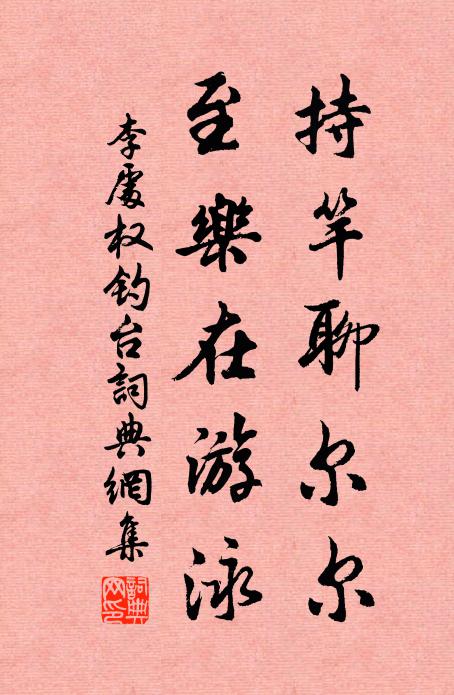 持竿聊尔尔
至樂在游泳
李處权钓台詞典網集
詞典网印